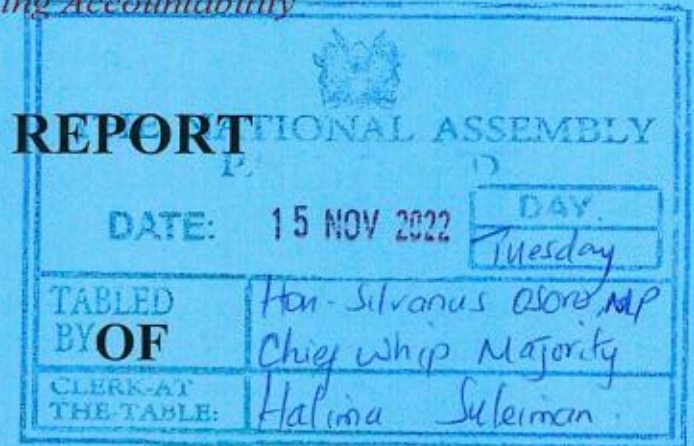 ing Accountability
REPORT
NATIONAL ASSEMBLY
DATE: 15 NOV 2022 DAY.
Tuesday
TABLED BY Hon. Silvanus Osoro, MP
Chief Whip Majority
OF
CLERK-AT THE-TABLE: Halima Suleiman.